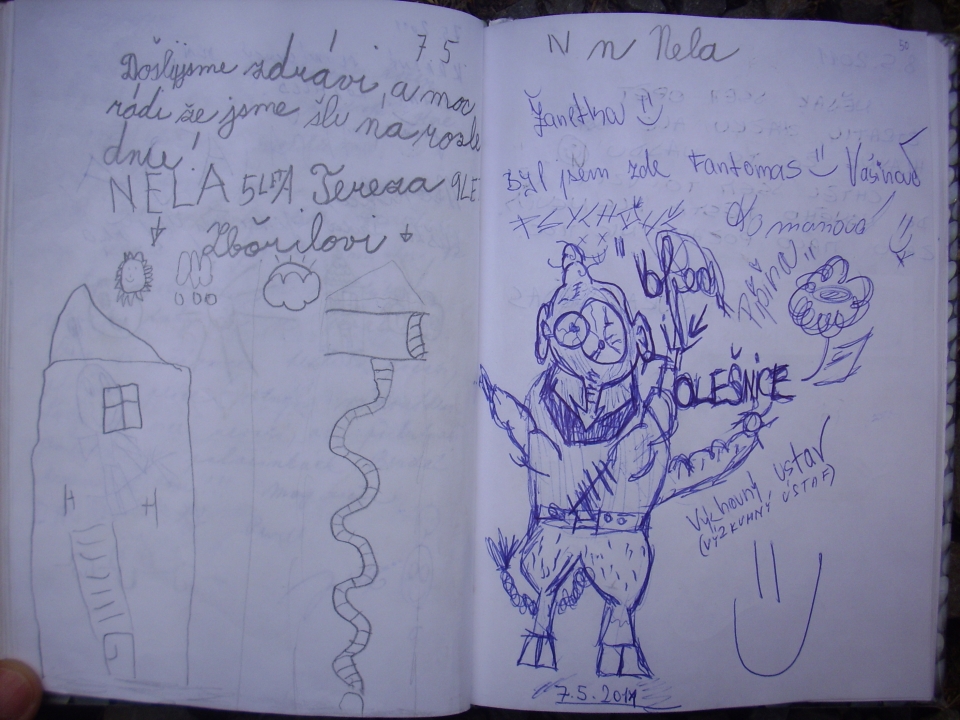 7 5
Došlijsme zdrávi, a moc
rádi že jsme šli na rozle
dnu!
NELA 5LEA Tereza 9LE
Zbořilovi
N n Nela
50
Žanetka
Byl jsem zde Fantomas Vášinová
OLEŠNICE
Výchovný ustav
(VÝZKUMNÝ ÚSTAF)
7.5.2011